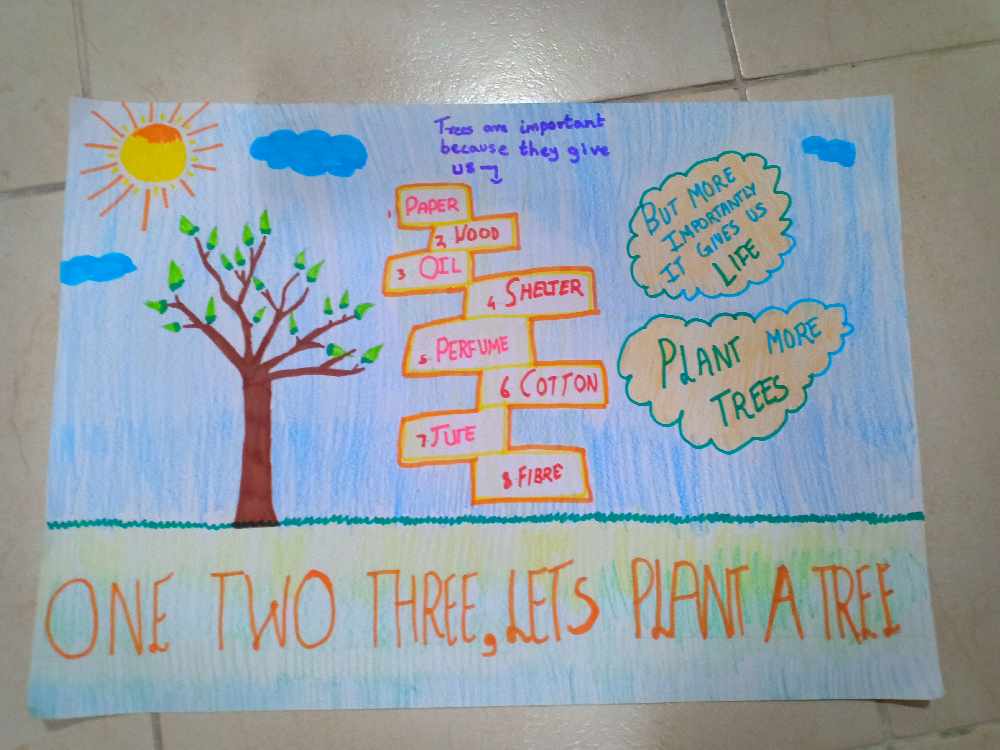 Trees are important
because they give
us
1. PAPER
2. WOOD
3 OIL
4 SHELTER
5. PERFUME
6 COTTON
7. JUTE
8 FIBRE
BUT MORE
IMPORTANTLY
IT GIVES US
LIFE
PLANT MORE
TREES
ONE TWO THREE, LETS PLANT A TREE